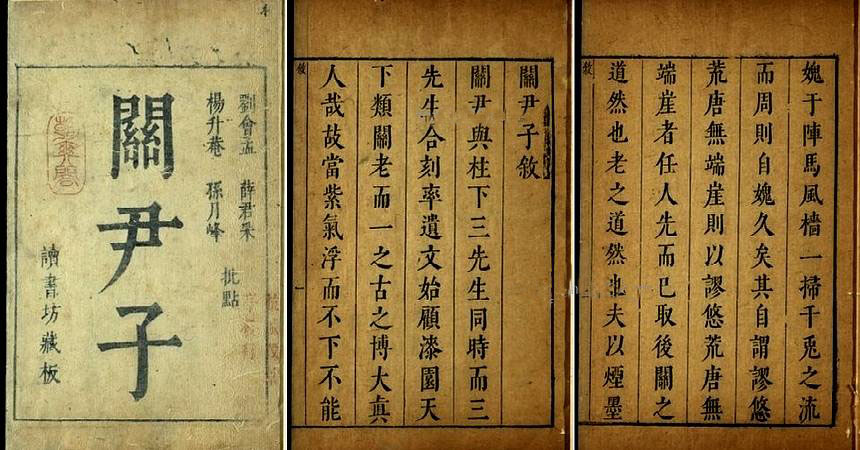 劉會孟 薛君采
楊升菴 孫月峰
批點
關尹子
讀書坊藏板
關尹子敘
關尹與柱下三先生同時而三
先生合刻率遺文始顧漆園天
下類關老而一之古之博大真
人哉故當紫氣浮而不下不能
媿于陣馬風檣一掃千兎之流
而周則自媿久矣其自謂謬悠
荒唐無端崖則以謬悠荒唐無
端崖者任人先而已取後關之
道然也老之道然也夫以煙墨
敘
敘
一